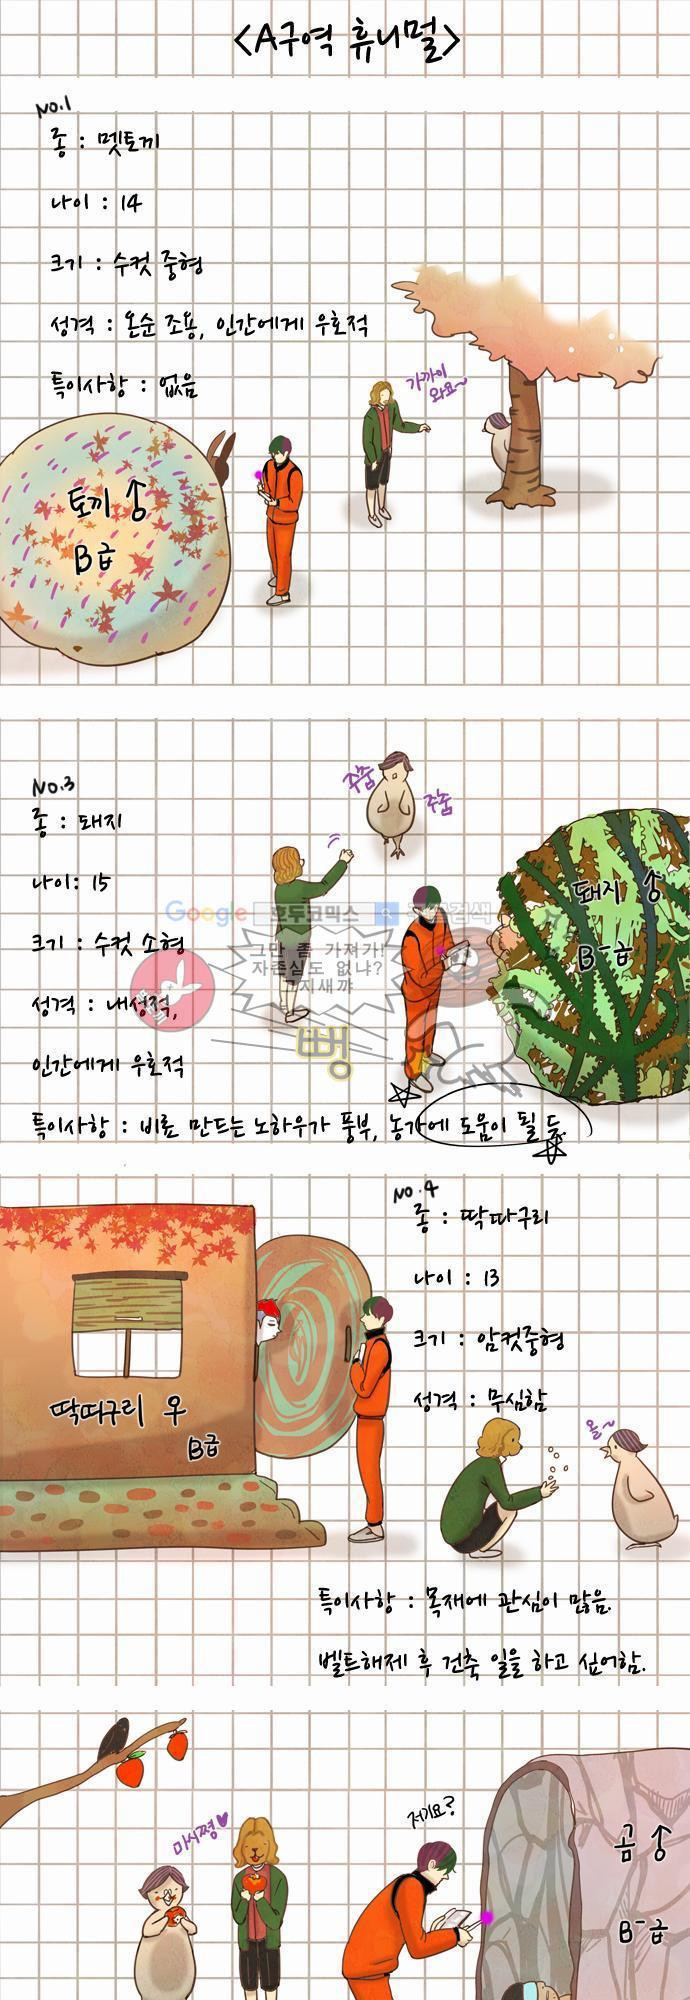 <A구역 휴니멀>
No.1
종 : 멧토끼
나이 : 14
크기 : 수컷 중형
성격 : 온순 조용, 인간에게 우호적
특이사항 : 없음
가까이
와요~
토끼 ♂
B급
No.3
종 : 돼지
주춤
주춤
나이 : 15
돼지 ♂
Google 호두코믹스
크기 : 수컷 소형
B-급
그만 좀 가져가!
자존심도 없냐?
거지새꺄
성격 : 내성적,
뻥
인간에게 우호적
특이사항 : 비료 만드는 노하우가 풍부, 농가에 도움이 될 듯.
No.4
종 : 딱따구리
나이 : 13
크기 : 암컷중형
성격 : 무심함
딱따구리 우
B급
올~
특이사항 : 목재에 관심이 많음.
벨트해제 후 건축 일을 하고 싶어함.
마시쪙♥
저기요?
곰 ♂
B-급